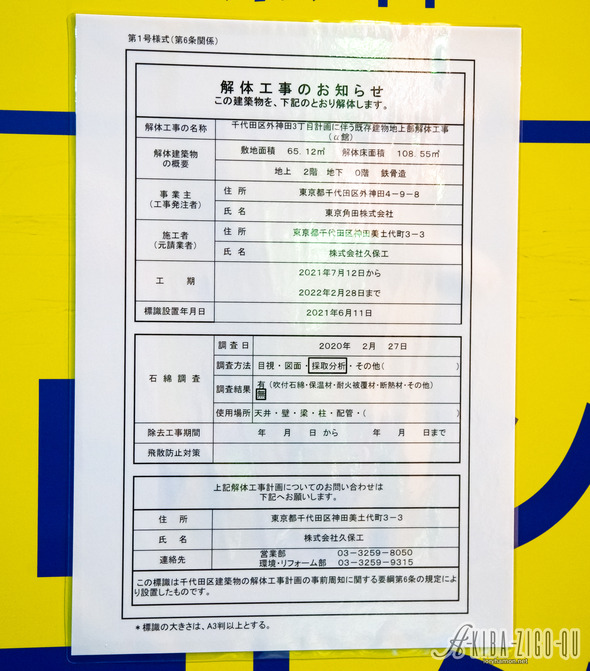 第1号様式(第6条関係)
解体工事のお知らせ
この建築物を、下記のとおり解体します。
解体工事の名称 千代田区外神田3丁目計画に伴う既存建物地上部解体工事
(α館)
解体建築物の概要 敷地面積 65.12㎡ 解体床面積 108.55㎡
地上 2階 地下 0階 鉄骨造
事業主(工事発注者) 住所 東京都千代田区外神田4-9-8
氏名 東京角田株式会社
施工者(元請業者) 住所 東京都千代田区神田美土代町3-3
氏名 株式会社久保工
工期 2021年7月12日から
2022年2月28日まで
標識設置年月日 2021年6月11日
石綿調査 調査日 2020年 2月 27日
調査方法 目視・図面・採取分析・その他( )
調査結果 有(吹付石綿・保温材・耐火被覆材・断熱材・その他)
無
使用場所 天井・壁・梁・柱・配管・( )
除去工事期間 年 月 日 から 年 月 日まで
飛散防止対策
上記解体工事計画についてのお問い合わせは
下記へお願いします。
住所 東京都千代田区神田美土代町3-3
氏名 株式会社久保工
連絡先 営業部 03-3259-8050
環境・リフォーム部 03-3259-9315
この標識は千代田区建築物の解体工事計画の事前周知に関する要綱第6条の規定によ
り設置したものです。
*標識の大きさは、A3判以上とする。
AKIBA-ZIGO-QU